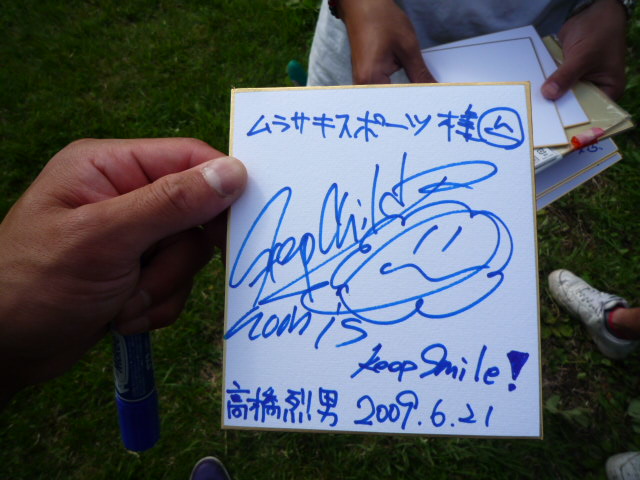 ムラサキスポーツ様 ム
Keep Child
Keep Smile!
高橋烈男 2009.6.21